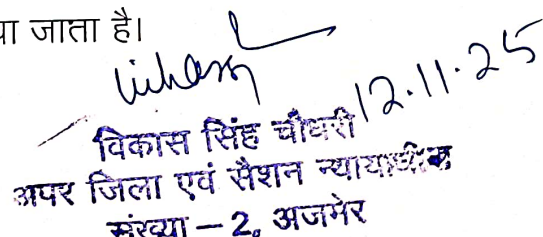 या जाता है।
Vikas
12.11.25
विकास सिंह चौधरी
अपर जिला एवं सैशन न्यायाधीश
संख्या – 2, अजमेर